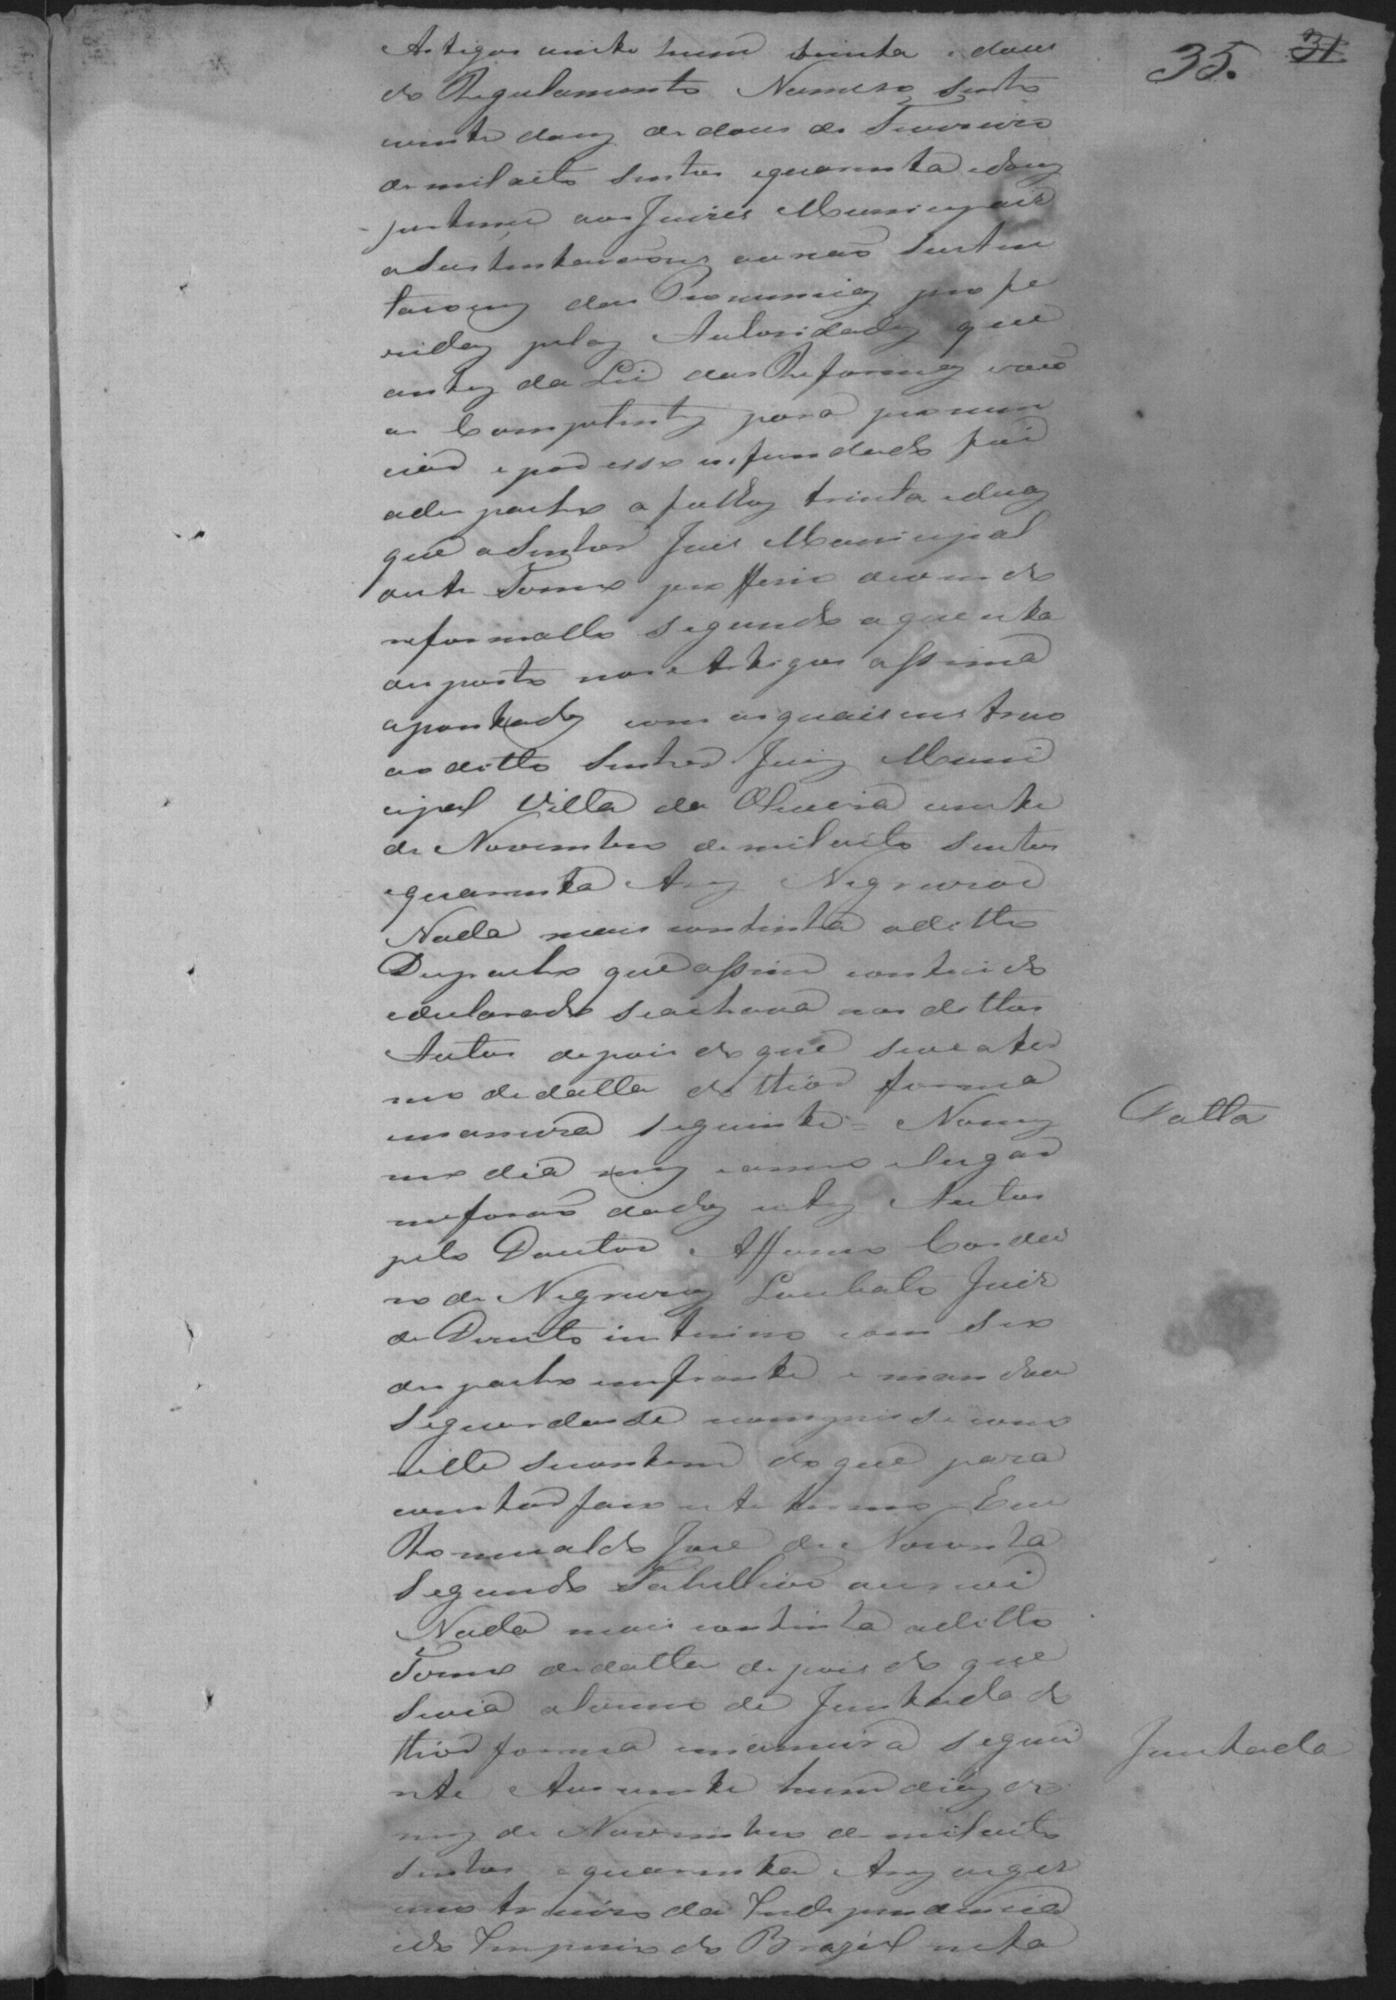 35. 31
Artigos vinte hum trinta e dous
do Regulamento Numero Sento
vinte dous de dous de Fevereiro
de mil oito sentos equarenta edous
pertence aos Juizes Municipais
a Sustentaçoens ou não Susten
taçoens das Pronuncias profe
ridas pelas Autoridades que
antes da Lei das Reformas erão
as Competentes para pronun
ciar e por isso infundado foi
o despacho a folhas trinta eduas
que o Senhor Juis Municipal
ante Termo profferio devendo
reformallo segundo aquesta
desposto nos Artigos assima
apontados com os quais instruo
ao ditto Senhor Juiz Muni
cipal Villa da Oliveira vinte
de Novembro de mil oito sentos
equarenta Negreiros
Nada mais continha o ditto
Despacho que assim contheudo
edeclarado se achava nos dittos
Autos depois do que se ve o ter
mo de datta do thior forma
emaneira seguinte = No mes
mo dia mez e anno e lugar
me forão dados estes Autos
pelo Doutor Affonso Cordei
ro de Negreiros Loubato Juis
de Direito interino com seu
despacho em frente e mandou
se guardasse e comprisse como
nelle se contem do que para
constar faço este termo Eu
Romualdo José de Noronha
Segundo Tabellião escrevi
Nada mais continha o ditto
Termo de datta depois do que
se via o termo de Juntada do
thior forma emaneira segui
nte Aos vinte hum dias do
mez de Novembro de mil oito
sentos e quarenta viges
imo treceiro da Independencia
edo Imperio do Brazil nesta
Datta
Juntada